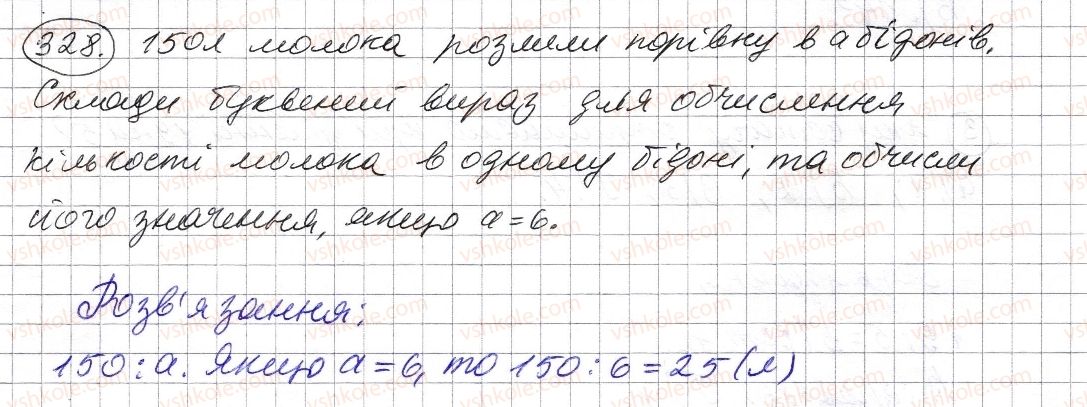 328. 150л молока розлили порівну в а бідонів.
Склади буквений вираз для обчислення
кількості молока в одному бідоні, та обчисли
його значення, якщо а=6.
Розв'язання:
150:а. Якщо а=6, то 150:6=25(л)